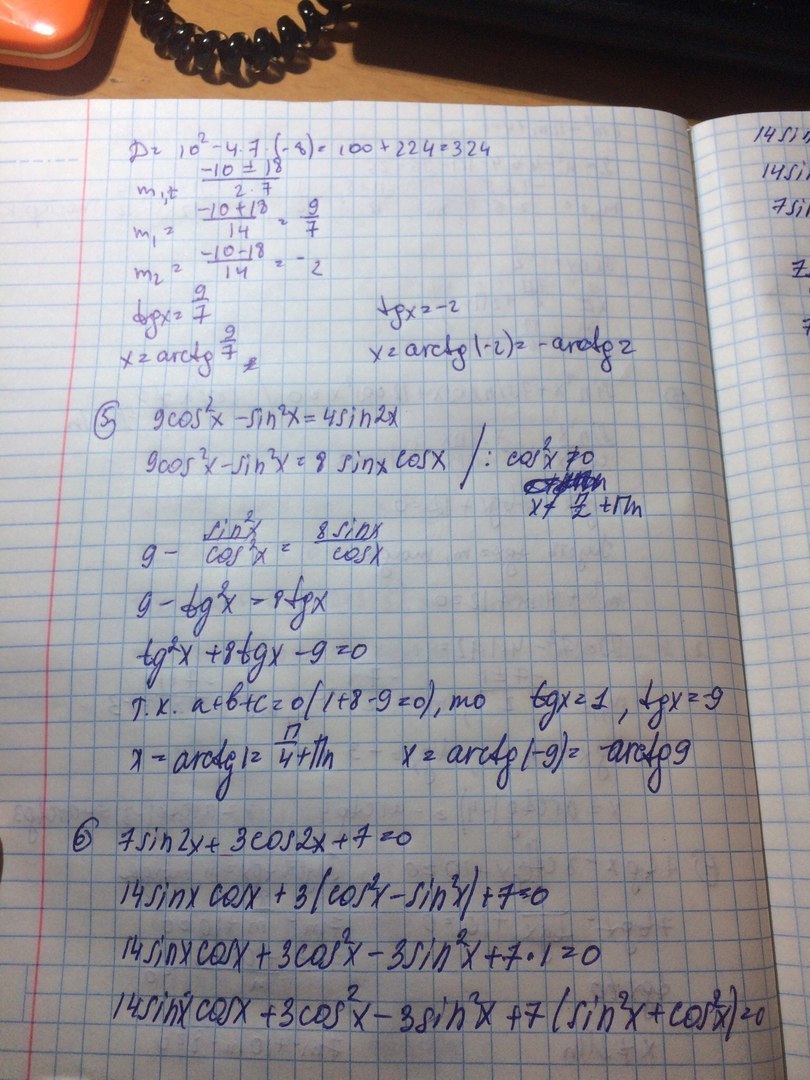 D = 10² - 4·7·(-8) = 100 + 224 = 324
m₁,₂ (-10 ± 18)/(2·7)
m₁ = (-10+18)/14 = 9/7
m₂ = (-10-18)/14 = -2
tgx = 9/7 tgx = -2
x = arctg 9/7 x = arctg(-2) = -arctg2
⑤ 9cos²x - sin²x = 4sin2x
9cos²x - sin²x = 8 sinx cosx /: cos²x ≠ 0
x ≠ π/2 + πn
9 - sin²x/cos²x = 8sinx/cosx
9 - tg²x = 8tgx
tg²x + 8tgx - 9 = 0
т.к. a+b+c=0 (1+8-9=0), то tgx=1, tgx=-9
x = arctg1 = π/4 + πn x = arctg(-9) = -arctg9
⑥ 7sin2x + 3cos2x + 7 = 0
14sinx cosx + 3(cos²x - sin²x) + 7 = 0
14sinx cosx + 3cos²x - 3sin²x + 7·1 = 0
14sinx cosx + 3cos²x - 3sin²x + 7(sin²x + cos²x) = 0
14sin
14sin
7sin
7
7